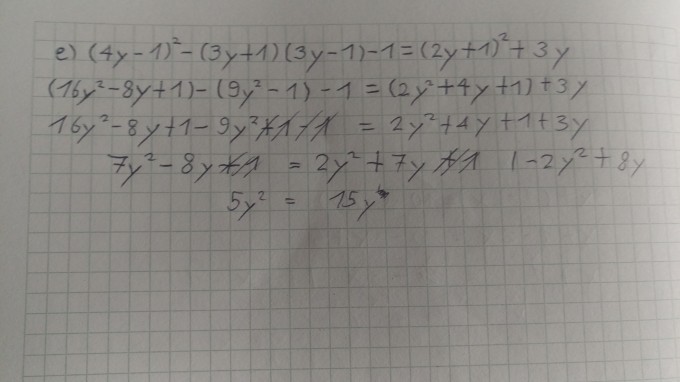 e) (4y-1)²-(3y+1)(3y-1)-1=(2y+1)²+3y
(16y²-8y+1)-(9y²-1)-1=(2y²+4y+1)+3y
16y²-8y+1-9y²+1-1=2y²+4y+1+3y
7y²-8y+1=2y²+7y+1 |-2y²+8y
5y²=15y